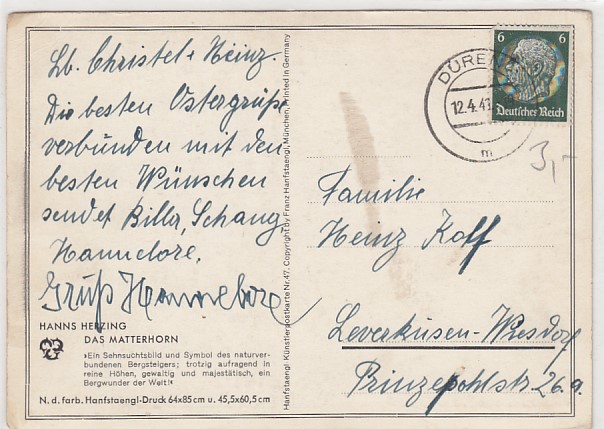 Lb. Christel + Heinz.
Die besten Ostergrüße
verbunden mit den
besten Wünschen
sendet Billa, Schang,
Hannelore.
Gruß Hannelore
HANNS HERZING
DAS MATTERHORN
»Ein Sehnsuchtsbild und Symbol des naturver-
bundenen Bergsteigers; trotzig aufragend in
reine Höhen, gewaltig und majestätisch, ein
Bergwunder der Welt!«
N. d. farb. Hanfstaengl-Druck 64x85 cm u. 45,5x60,5 cm
Hanfstaengl. Künstlerpostkarte Nr. 47. Copyright by Franz Hanfstaengl, München. Printed in Germany
DÜREN
12.4.41
m
6 6
Deutsches Reich
3,-
Familie
Heinz Koff
Leverkusen-Wiesdorf
Prinzepohlstr. 26.a.